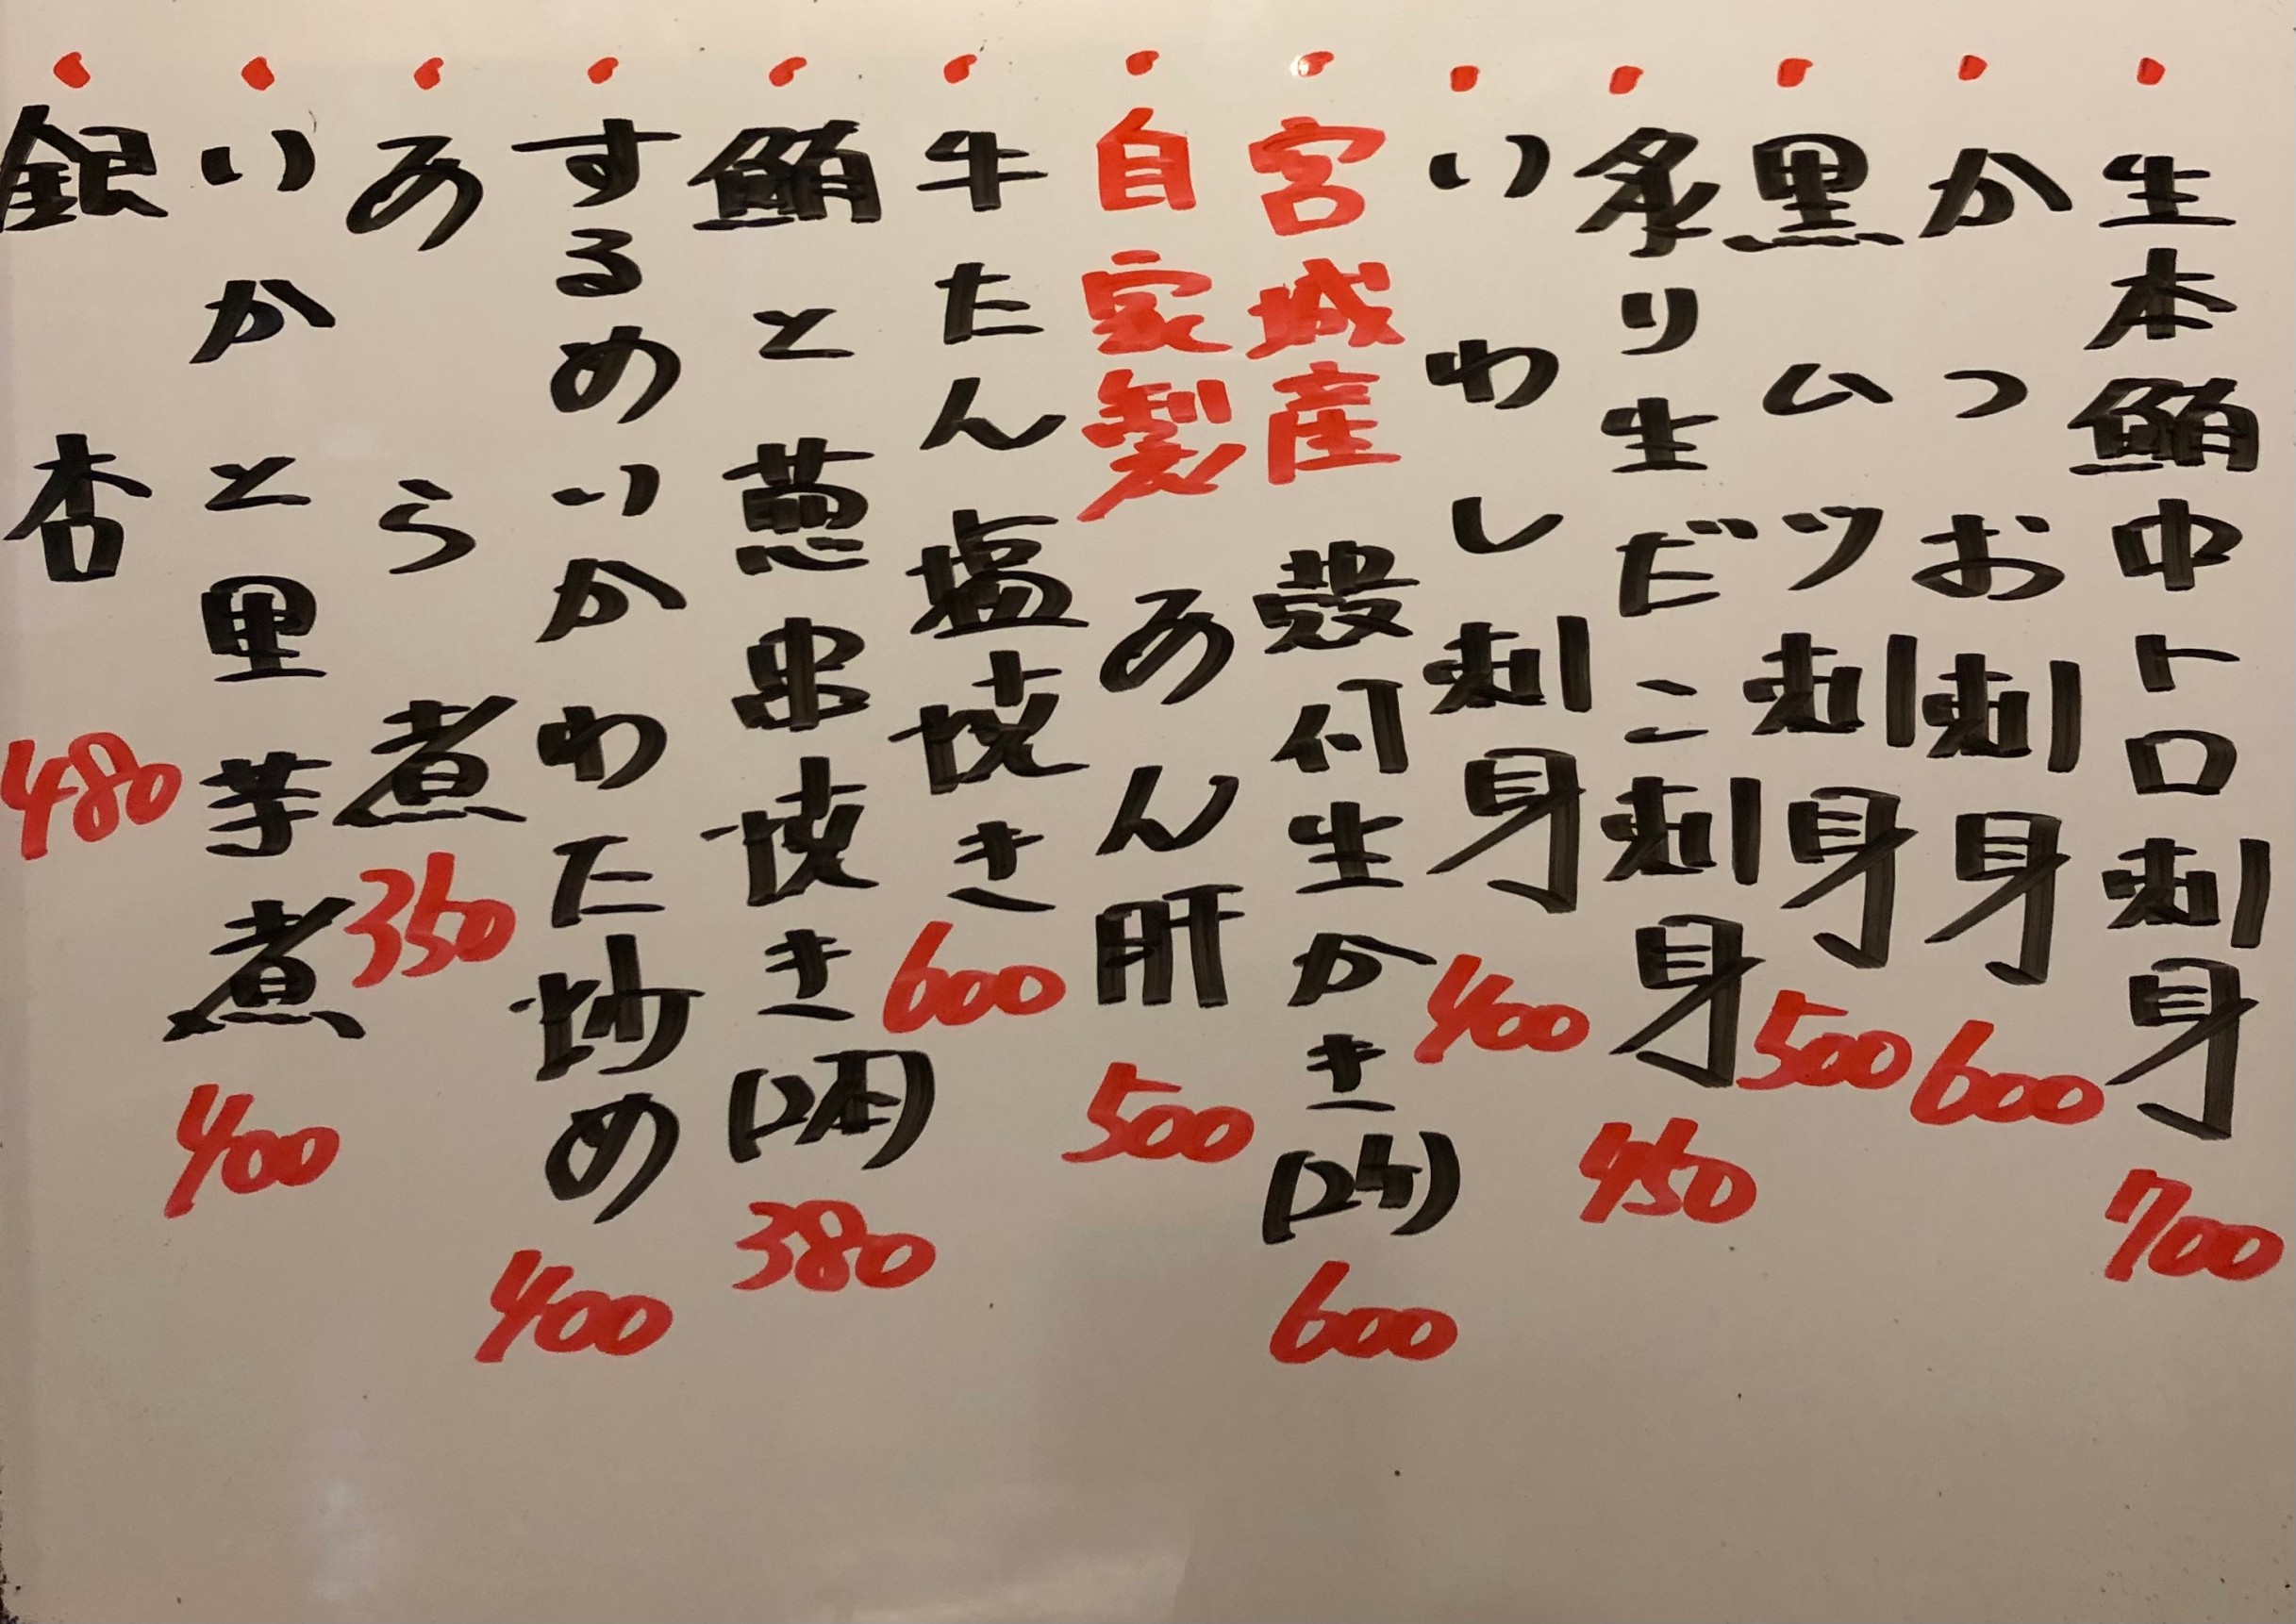 ・生本鮪中トロ刺身 700
・かつお刺身 600
・黒ムツ刺身 500
・炙り生だこ刺身 450
・いわし刺身 400
・宮城産 殻付生かき(2ケ) 600
・自家製 あん肝 500
・牛たん塩焼き 600
・鮪と葱串焼き(2本) 380
・するめいかわた炒め 400
・あら煮 350
・いかと里芋煮 400
・銀杏 480